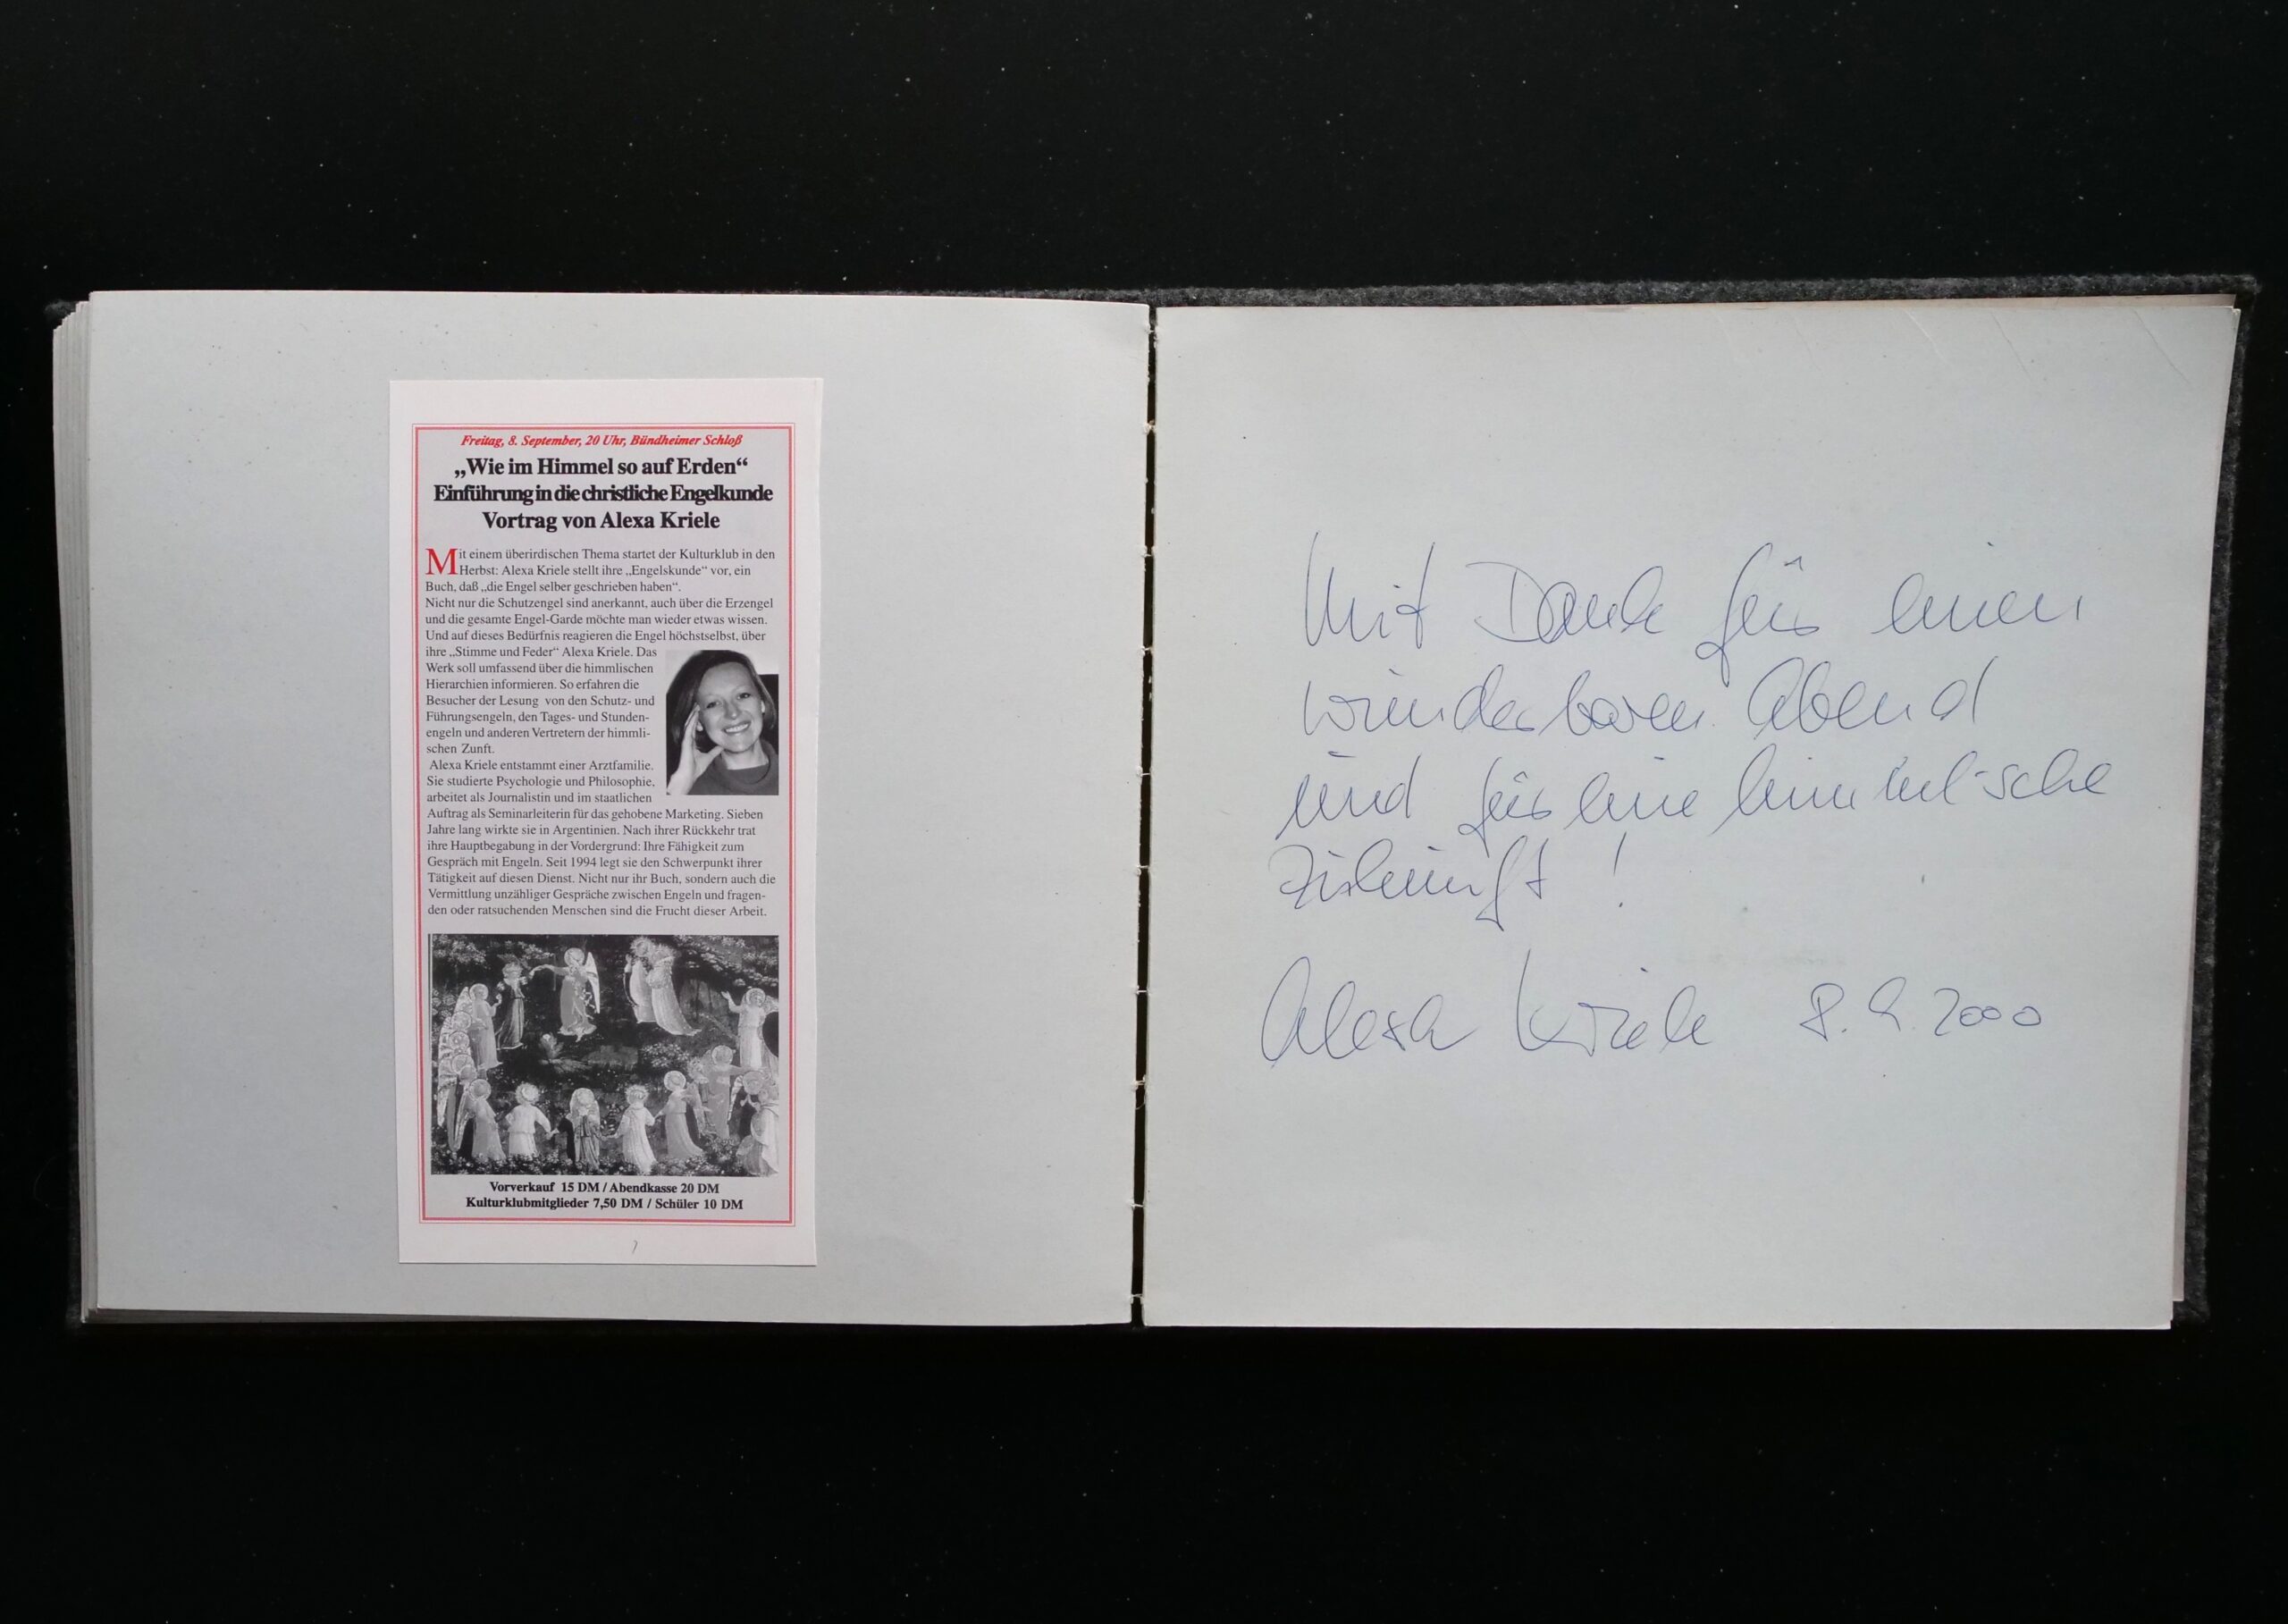 Freitag, 8. September, 20 Uhr, Bündheimer Schloß
„Wie im Himmel so auf Erden“
Einführung in die christliche Engelkunde
Vortrag von Alexa Kriele
Mit einem überirdischen Thema startet der Kulturklub in den
Herbst: Alexa Kriele stellt ihre „Engelskunde“ vor, ein
Buch, daß „die Engel selber geschrieben haben“.
Nicht nur die Schutzengel sind anerkannt, auch über die Erzengel
und die gesamte Engel-Garde möchte man wieder etwas wissen.
Und auf dieses Bedürfnis reagieren die Engel höchstselbst, über
ihre „Stimme und Feder“ Alexa Kriele. Das
Werk soll umfassend über die himmlischen
Hierarchien informieren. So erfahren die
Besucher der Lesung von den Schutz- und
Führungsengeln, den Tages- und Stunden-
engeln und anderen Vertretern der himmli-
schen Zunft.
Alexa Kriele entstammt einer Arztfamilie.
Sie studierte Psychologie und Philosophie,
arbeitet als Journalistin und im staatlichen
Auftrag als Seminarleiterin für das gehobene Marketing. Sieben
Jahre lang wirkte sie in Argentinien. Nach ihrer Rückkehr trat
ihre Hauptbegabung in der Vordergrund: Ihre Fähigkeit zum
Gespräch mit Engeln. Seit 1994 legt sie den Schwerpunkt ihrer
Tätigkeit auf diesen Dienst. Nicht nur ihr Buch, sondern auch die
Vermittlung unzähliger Gespräche zwischen Engeln und fragen-
den oder ratsuchenden Menschen sind die Frucht dieser Arbeit.
Vorverkauf 15 DM / Abendkasse 20 DM
Kulturklubmitglieder 7,50 DM / Schüler 10 DM
Mit Dank für einen
wunderbaren Abend
und für eine himmlische
Zukunft !
Alexa Kriele 8. 9. 2000